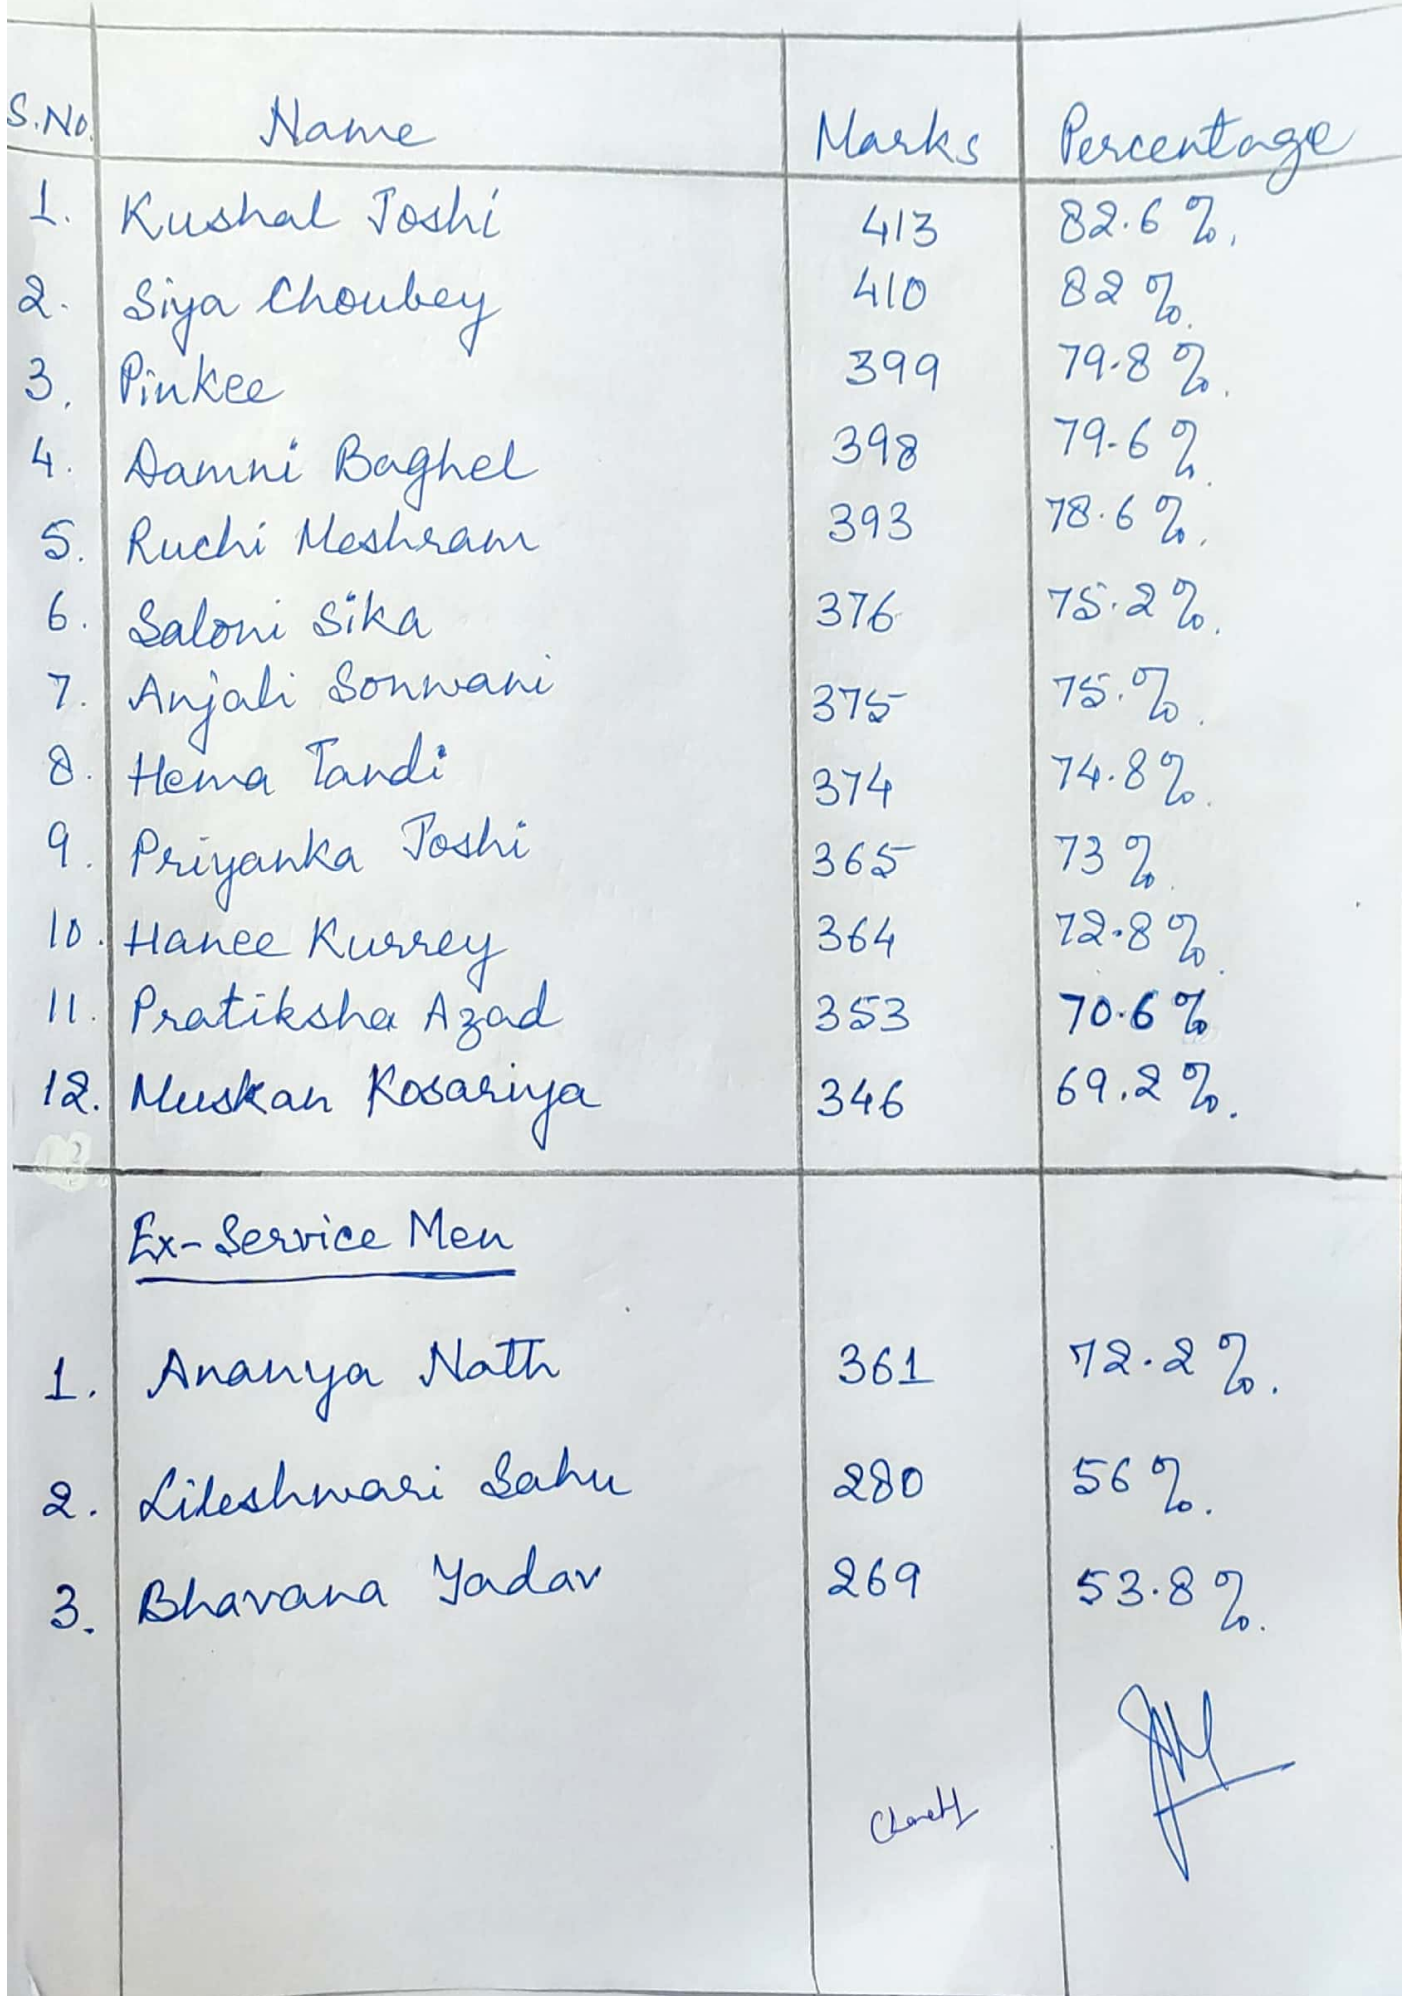 S.No. Name Marks Percentage
1. Kushal Joshi 413 82.6 %.
2. Siya Choubey 410 82 %.
3. Pinkee 399 79.8 %.
4. Damni Baghel 398 79.6 %.
5. Ruchi Meshram 393 78.6 %.
6. Saloni Sika 376 75.2 %.
7. Anjali Sonwani 375 75.%.
8. Hema Tandi 374 74.8 %.
9. Priyanka Joshi 365 73 %.
10. Hanee Kurrey 364 72.8 %.
11. Pratiksha Azad 353 70.6 %
12. Muskan Kosariya 346 69.2 %.
Ex-Service Men
1. Ananya Nath 361 72.2 %.
2. Lileshwari Sahu 280 56 %.
3. Bhavana Yadav 269 53.8 %.